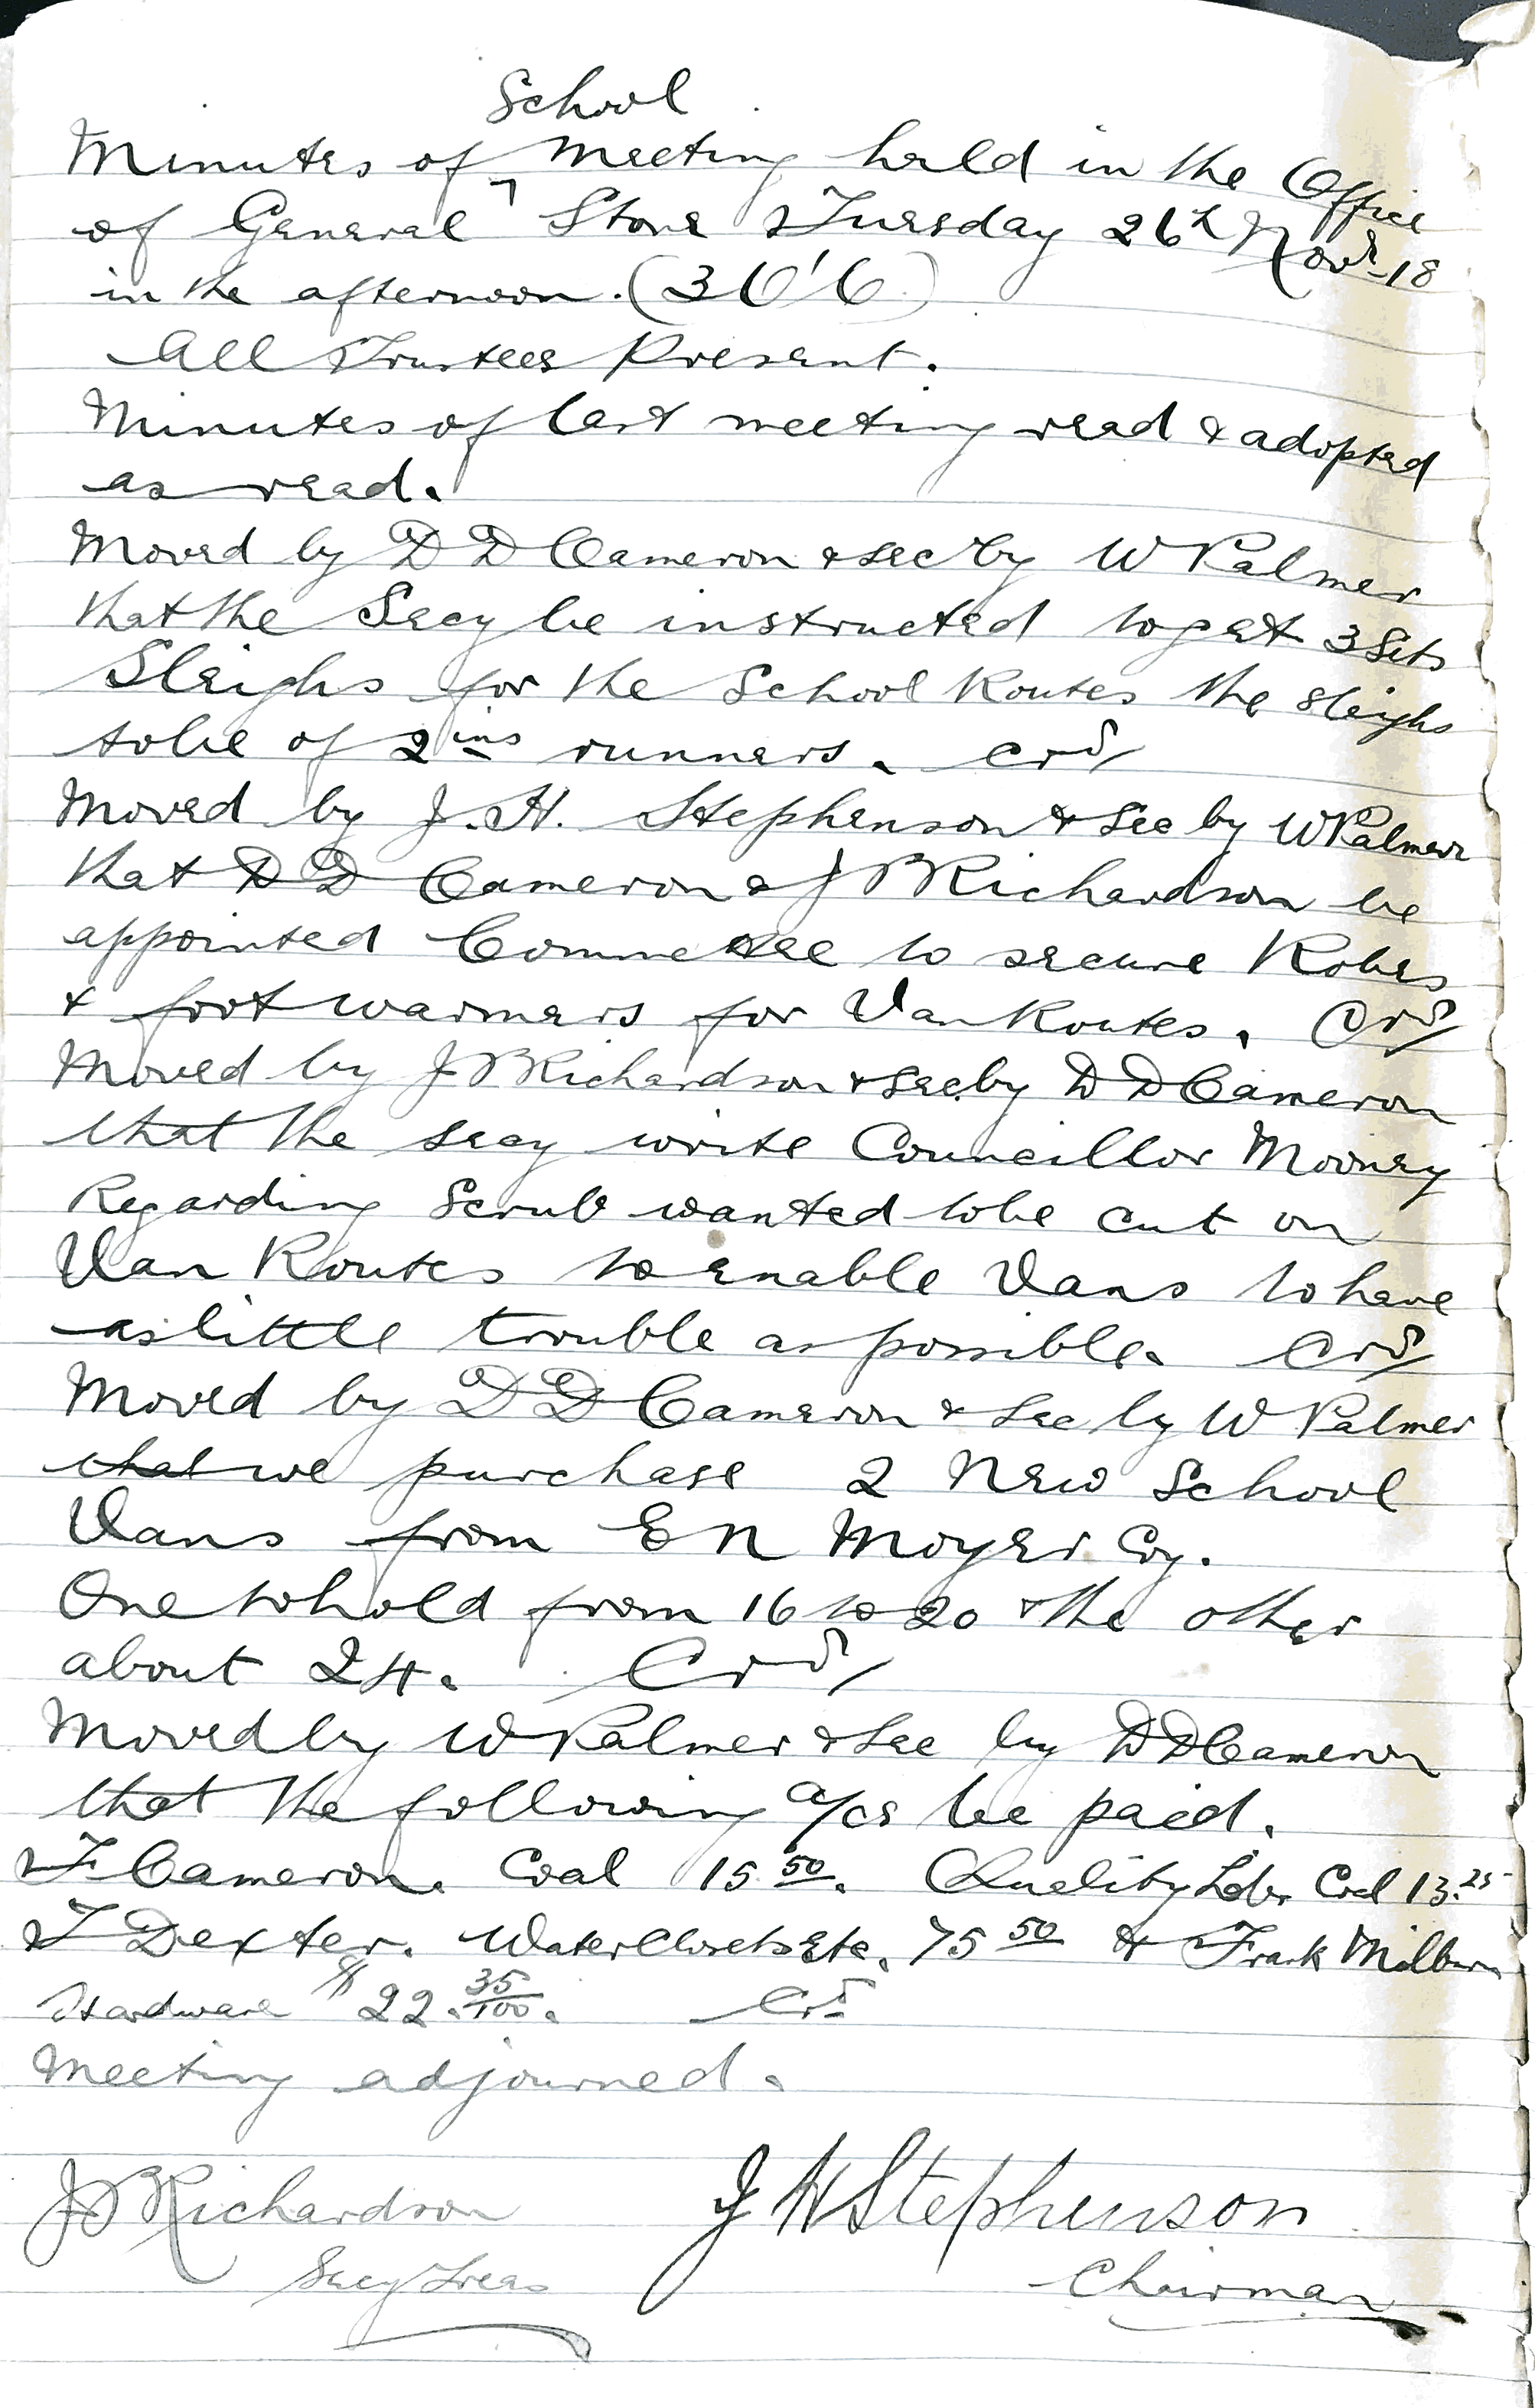 School
Minutes of meeting held in the Office
of General Store Tuesday 26th Novr-18
in the afternoon.
All Trustees Present.
Minutes of last meeting read & adopted
as read.
Moved by D D Cameron & sec by W Palmer
that the Secy be instructed to get 3 Sets
Sleighs for the School Routes the sleighs
to be of 2ins runners. Crd/
Moved by J. H. Stephenson & Sec by W Palmer
that D D Cameron & J B Richardson be
appointed Committee to secure Robes
& foot warmers for Van Routes. Crd/
Moved by J B Richardson & sec by D D Cameron
that the secy write Councillor Mooney
Regarding Scrub wanted to be cut on
Van Routes to enable Vans to have
as little trouble as possible. Crd/
Moved by D D Cameron & Sec by W Palmer
that we purchase 2 New School
Vans from E N Moyer Coy.
One to hold from 16 to 20 & the other
about 24. Crd/
Moved by W Palmer & Sec by D D Cameron
that the following a/cs be paid.
F Cameron. Coal 15 50. Quality Coal 13.25
T Dexter. Water Closets Etc. 75 50 & Frank Milburn
Hardware $22.35/100. Crd
Meeting adjourned.
J B Richardson J H Stephenson
Secy Treas Chairman